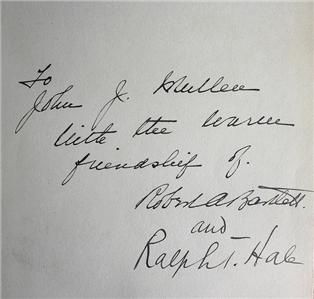 To
John J. Mullen
With the warm
friendship of.
Robert A Bartlett.
and
Ralph T. Hale